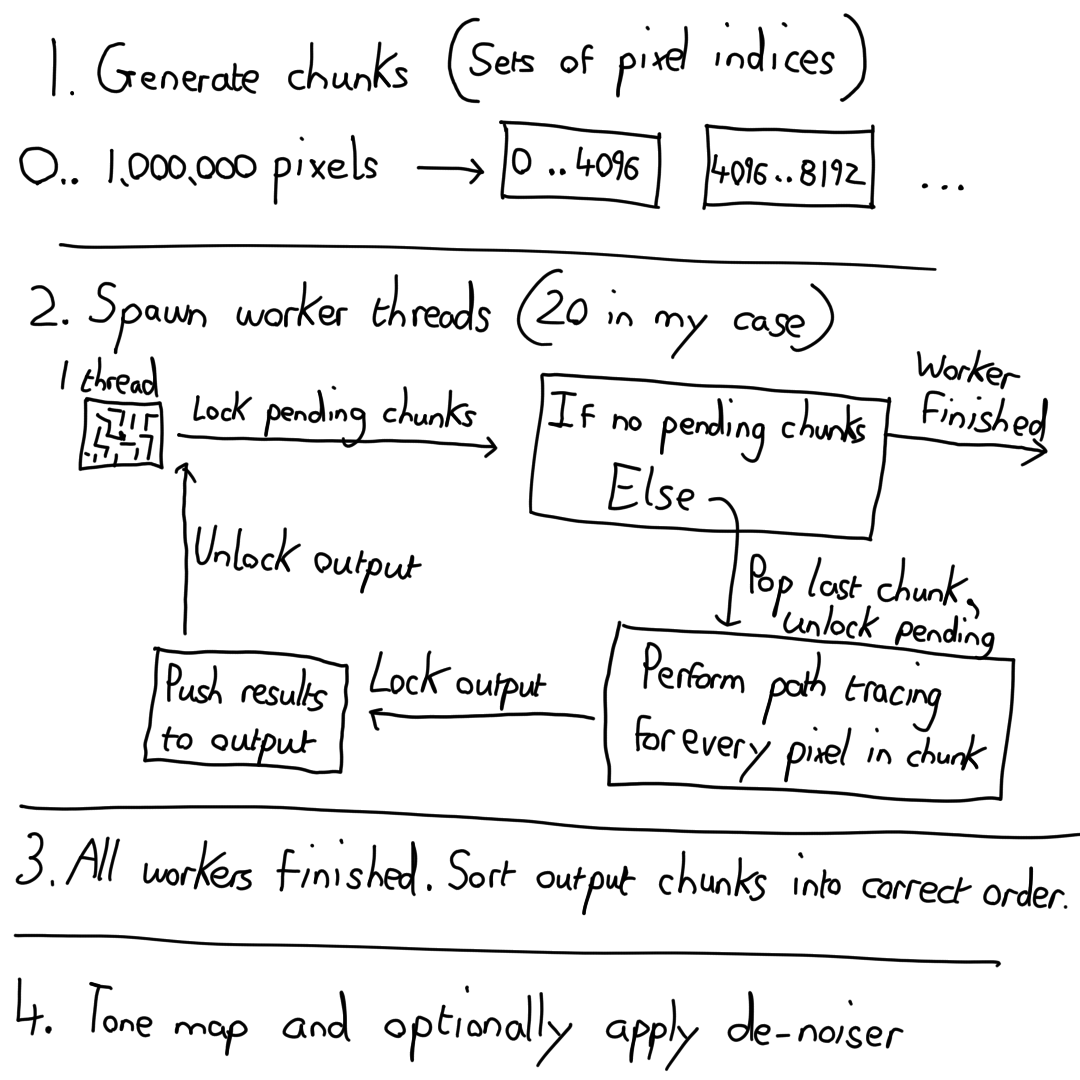 1. Generate chunks (Sets of pixel indices)
0.. 1,000,000 pixels → 0 ..4096 4096..8192 ...
2. Spawn worker threads (20 in my case)
1 thread
Lock pending chunks
If no pending chunks
Else
Worker
Finished
Pop last chunk,
unlock pending
Perform path tracing
for every pixel in chunk
Lock output
Push results
to output
Unlock output
3. All workers finished. Sort output chunks into correct order.
4. Tone map and optionally apply de-noiser